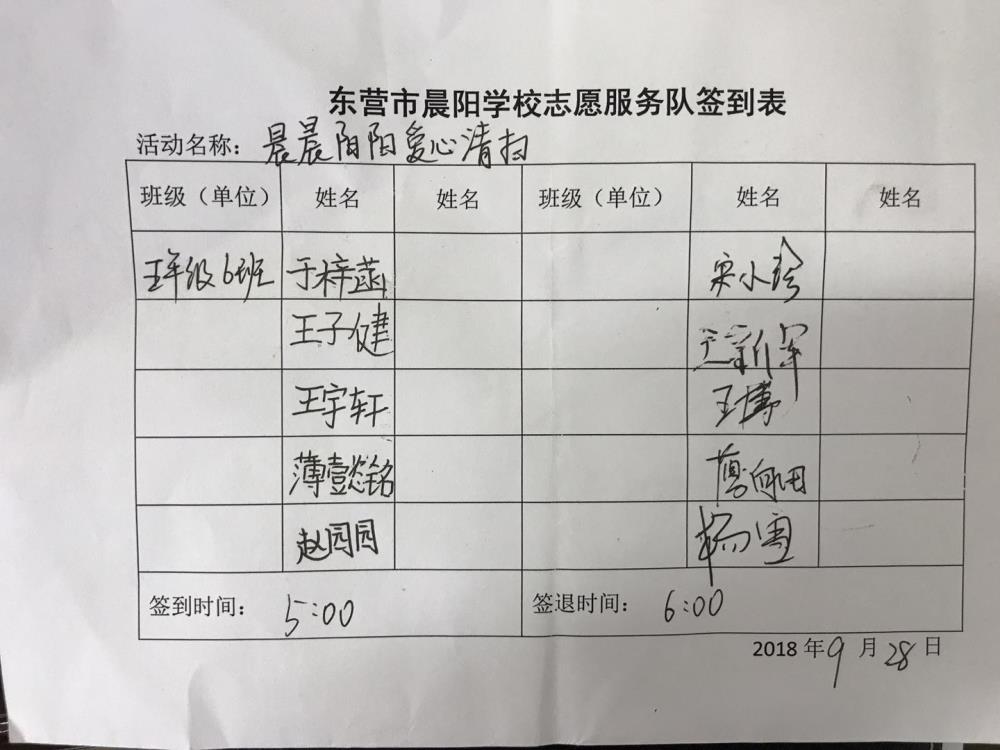 东营市晨阳学校志愿服务队签到表
活动名称：晨晨阳阳爱心清扫
班级（单位） 姓名 姓名 班级（单位） 姓名 姓名
五年级6班 于梓菡 宋小玲
王子健 王新军
王宇轩 王博
薄壹懿铭
赵园园 杨寓
签到时间： 5:00 签退时间： 6:00
2018年9月28日